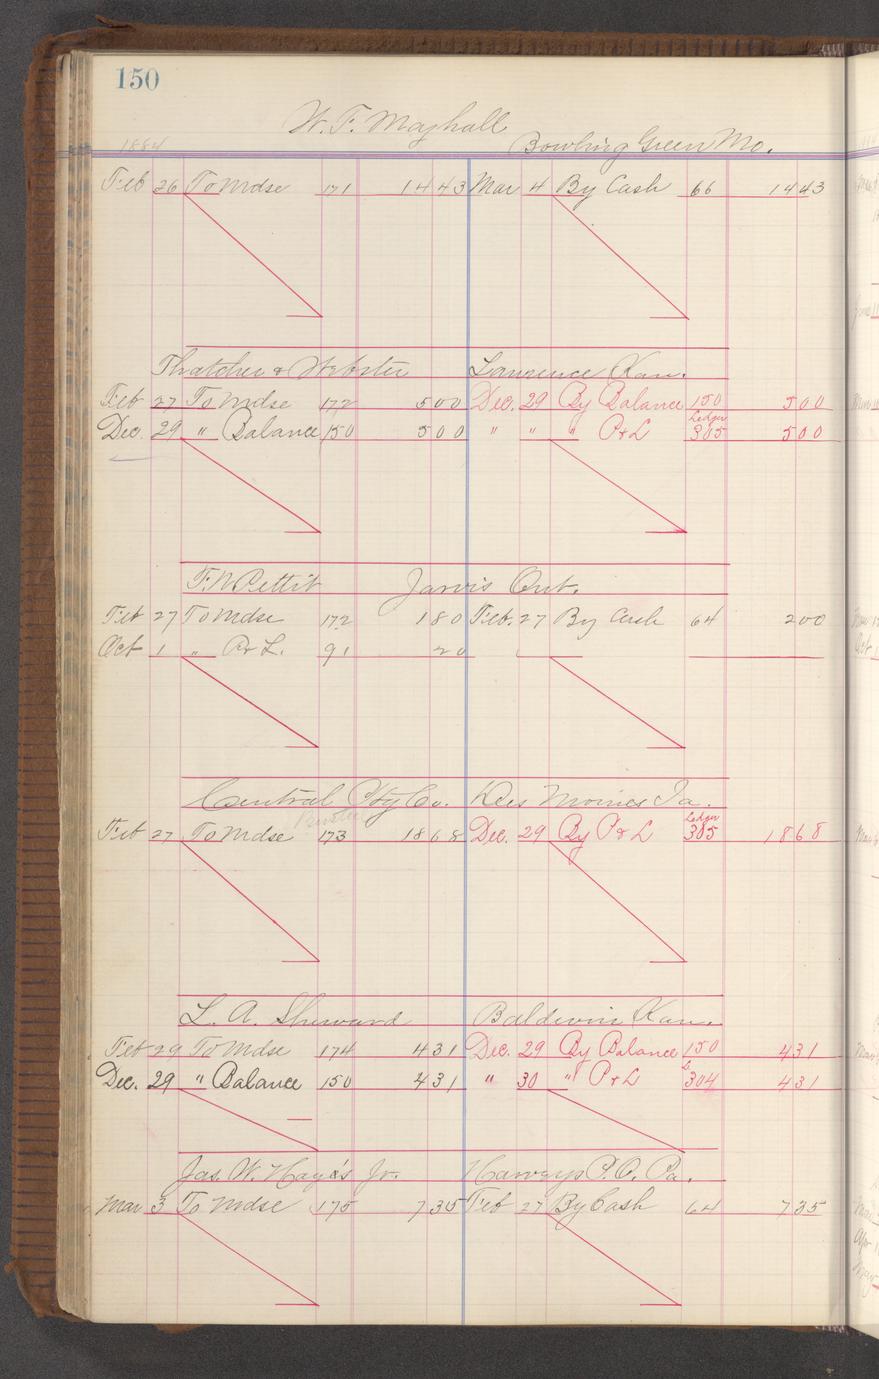 150
W. F. Mayhall
1884 Bowling Green Mo.
Feb 26 To Mdse 171 1443 Mar 4 By Cash 66 1443
Thatcher & Webster Lawrence Kan.
Feb 27 To Mdse 172 500 Dec. 29 By Balance 150 500
Dec. 29 " Balance 150 500 " " " P&L Ledger 305 500
F. N. Pettit Jarvis Ont.
Feb 27 To Mdse 172 180 Feb. 27 By Cash 64 200
Oct 1 " P&L. 91 20
Central Pty Co. Des Moines Ia.
Feb 27 To Mdse 173 1868 Dec. 29 By P&L Ledger 305 1868
L. A. Sheward Baldwin Kan.
Feb 29 To Mdse 174 431 Dec. 29 By Balance 150 431
Dec. 29 " Balance 150 431 " 30 " P&L L. 304 431
Jas. W. Hayes Jr. P.O. Pa.
Mar 3 To Mdse 175 735 Feb 27 By Cash 64 735